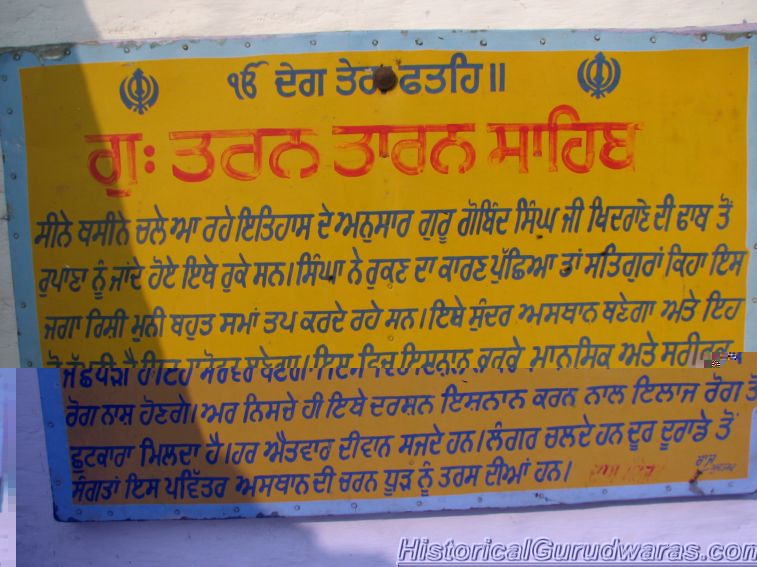 ੴ ਦੇਗ ਤੇਗ ਫਤਹਿ॥
ਗੁਃ ਤਰਨ ਤਾਰਨ ਸਾਹਿਬ
ਸੀਨੇ ਬਸੀਨੇ ਚਲੇ ਆ ਰਹੇ ਇਤਿਹਾਸ ਦੇ ਅਨੁਸਾਰ ਗੁਰੂ ਗੋਬਿੰਦ ਸਿੰਘ ਜੀ ਖਿਦਰਾਣੇ ਦੀ ਢਾਬ ਤੋਂ
ਰੁਪਾਣਾ ਨੂੰ ਜਾਂਦੇ ਹੋਏ ਇਥੇ ਰੁਕੇ ਸਨ। ਸਿੰਘਾ ਨੇ ਰੁਕਣ ਦਾ ਕਾਰਣ ਪੁੱਛਿਆ ਤਾਂ ਸਤਿਗੁਰਾਂ ਕਿਹਾ ਇਸ
ਜਗਾ ਰਿਸ਼ੀ ਮੁਨੀ ਬਹੁਤ ਸਮਾਂ ਤਪ ਕਰਦੇ ਰਹੇ ਸਨ। ਇਥੇ ਸੁੰਦਰ ਅਸਥਾਨ ਬਣੇਗਾ ਅਤੇ ਇਹ
ਇਸ ਵਿਚ ਇਸ਼ਨਾਨ ਕਰਕੇ ਮਾਨਸਿਕ ਅਤੇ ਸਰੀਰਕ
ਰੋਗ ਨਾਸ਼ ਹੋਣਗੇ। ਅਰ ਨਿਸਚੇ ਹੀ ਇਥੇ ਦਰਸ਼ਨ ਇਸ਼ਨਾਨ ਕਰਨ ਨਾਲ ਇਲਾਜ ਰੋਗ ਤੋਂ
ਛੁਟਕਾਰਾ ਮਿਲਦਾ ਹੈ। ਹਰ ਐਤਵਾਰ ਦੀਵਾਨ ਸਜਦੇ ਹਨ। ਲੰਗਰ ਚਲਦੇ ਹਨ ਦੂਰ ਦੂਰਾਡੇ ਤੋਂ
ਸੰਗਤਾਂ ਇਸ ਪਵਿੱਤਰ ਅਸਥਾਨ ਦੀ ਚਰਨ ਧੂੜ ਨੂੰ ਤਰਸ ਦੀਆਂ ਹਨ।
HistoricalGurudwaras.com